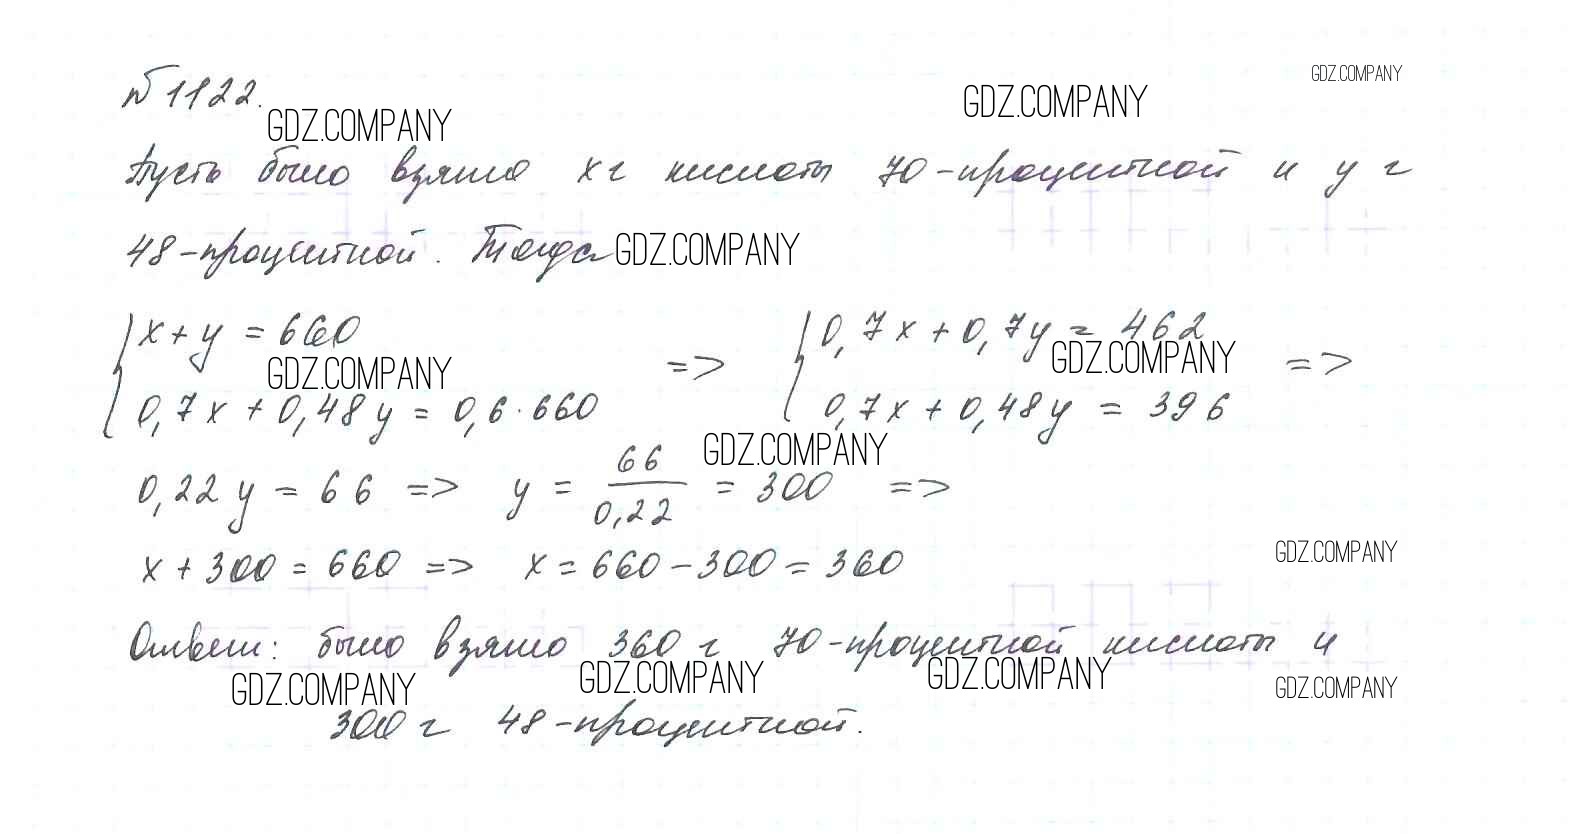 GDZ.COMPANY
№ 1122.
GDZ.COMPANY
GDZ.COMPANY
Пусть было взято х г кислоты 70-процентной и у г
48-процентной. Тогда
GDZ.COMPANY
x + y = 660
0,7x + 0,7y = 462
=>
=>
GDZ.COMPANY
GDZ.COMPANY
0,7x + 0,48y = 0,6·660
0,7x + 0,48y = 396
GDZ.COMPANY
0,22y = 66 => y = 66/0,22 = 300 =>
x + 300 = 660 => x = 660 – 300 = 360
GDZ.COMPANY
Ответ: было взято 360 г 70-процентной кислоты и
GDZ.COMPANY
GDZ.COMPANY
GDZ.COMPANY
GDZ.COMPANY
300 г 48-процентной.